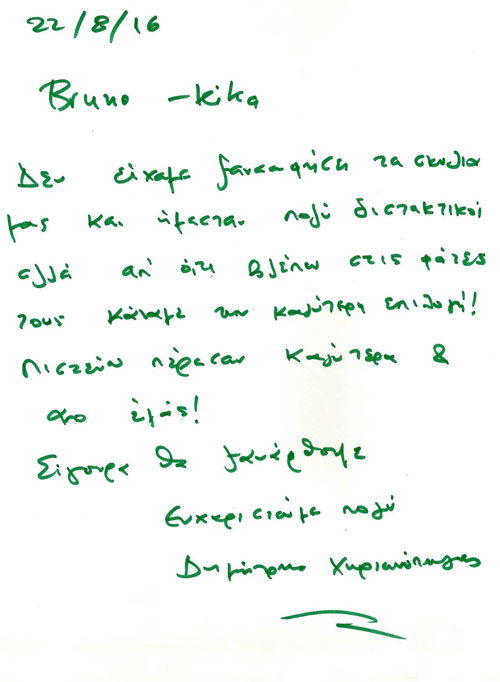 22/8/16
Bruno - Kika
Δεν είχαμε ξανααφήσει τα σκυλιά
μας και ήμασταν πολύ διστακτικοί
αλλά απ' ότι βλέπω στις φάτσες
τους κάναμε την καλύτερη επιλογή!
Πιστεύω πέρασαν καλύτερα &
απο εμάς!
Σίγουρα θα ξανάρθουμε
Ευχαριστούμε πολύ